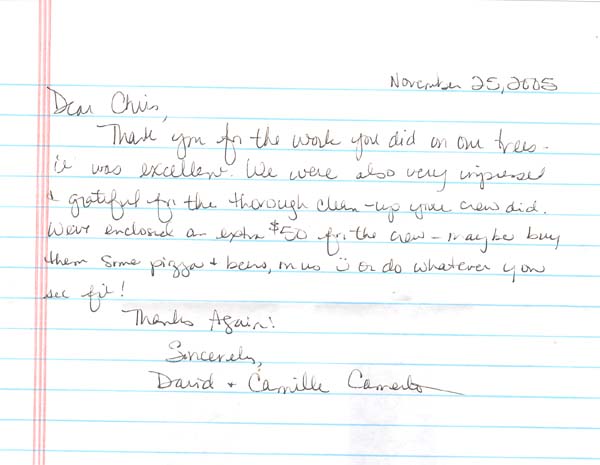 November 25, 2005
Dear Chris,
Thank you for the work you did on our trees -
it was excellent. We were also very impressed
+ grateful for the thorough clean-up your crew did.
We've enclosed an extra $50 for the crew - maybe buy
them some pizza + beers, on us ☺ or do whatever you
see fit!
Thanks Again!
Sincerely,
David + Camille